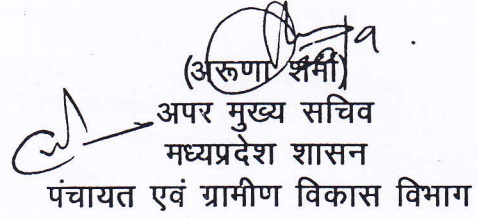 (अरूणा शर्मा)
अपर मुख्य सचिव
मध्यप्रदेश शासन
पंचायत एवं ग्रामीण विकास विभाग